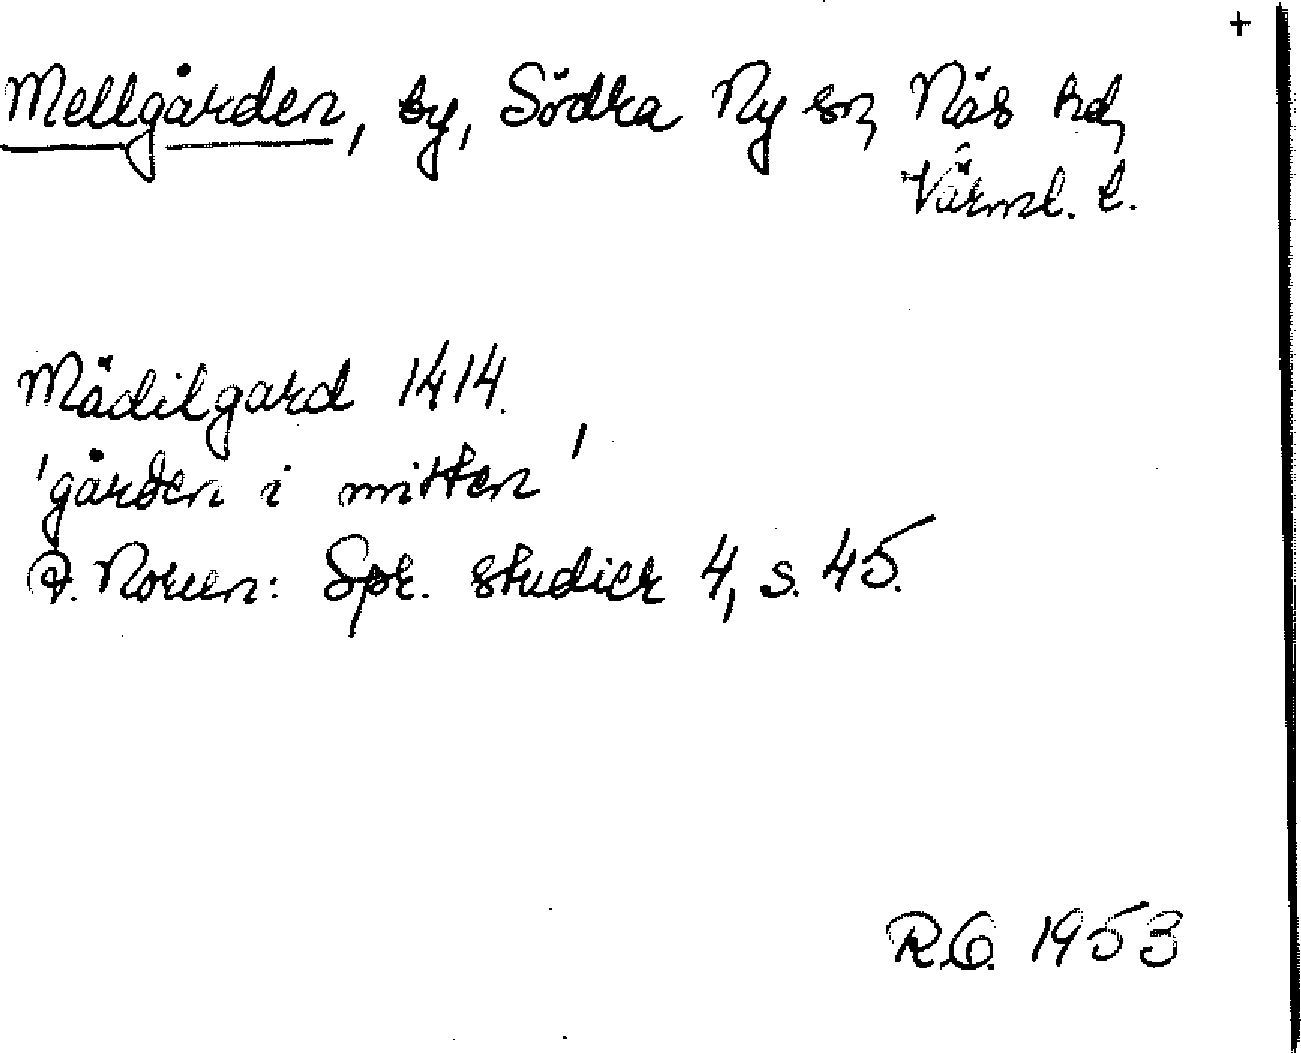 +
Mellgården, by, Södra Ny sn, Näs hd,
Värml. l.
Mädilgard 1414.
'gården i mitten'
A. Noreen: Spr. studier 4, s. 45.
R.O. 1953